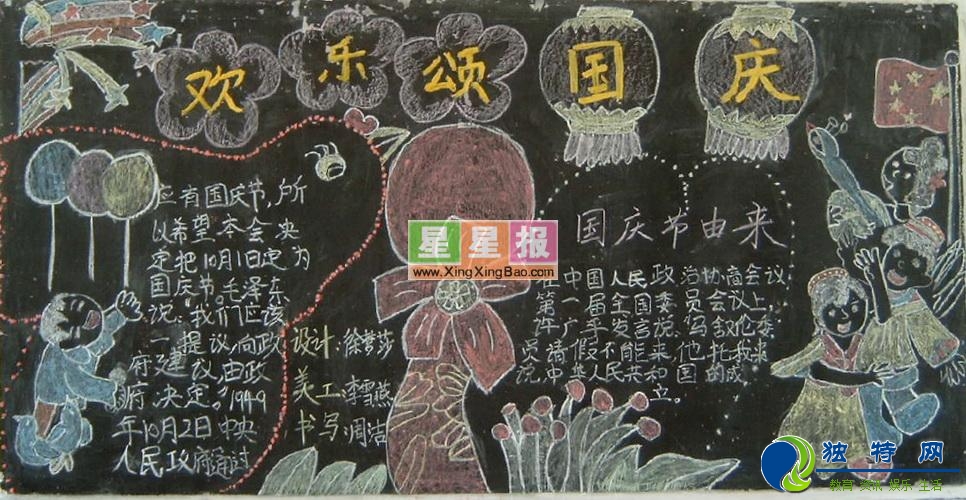 欢乐颂国庆
国庆节由来
在中国人民政治协商会议
第一届全国委员会议上,
许广平发言说,写叙伦委
员请假不能来,他托我来
说中华人民共和国的成
立。
应有国庆节,所
以希望本会决
定把10月1日定为
国庆节。毛泽东
说:我们应该
一提议,向政
府建议,由政
府决定。"1949
年10月2日中央
人民政府通过
设计:徐梦莎
美工:李雪燕
书写:周洁
星星报
www.XingXingBao.com
独特网
教育·资讯·娱乐·生活